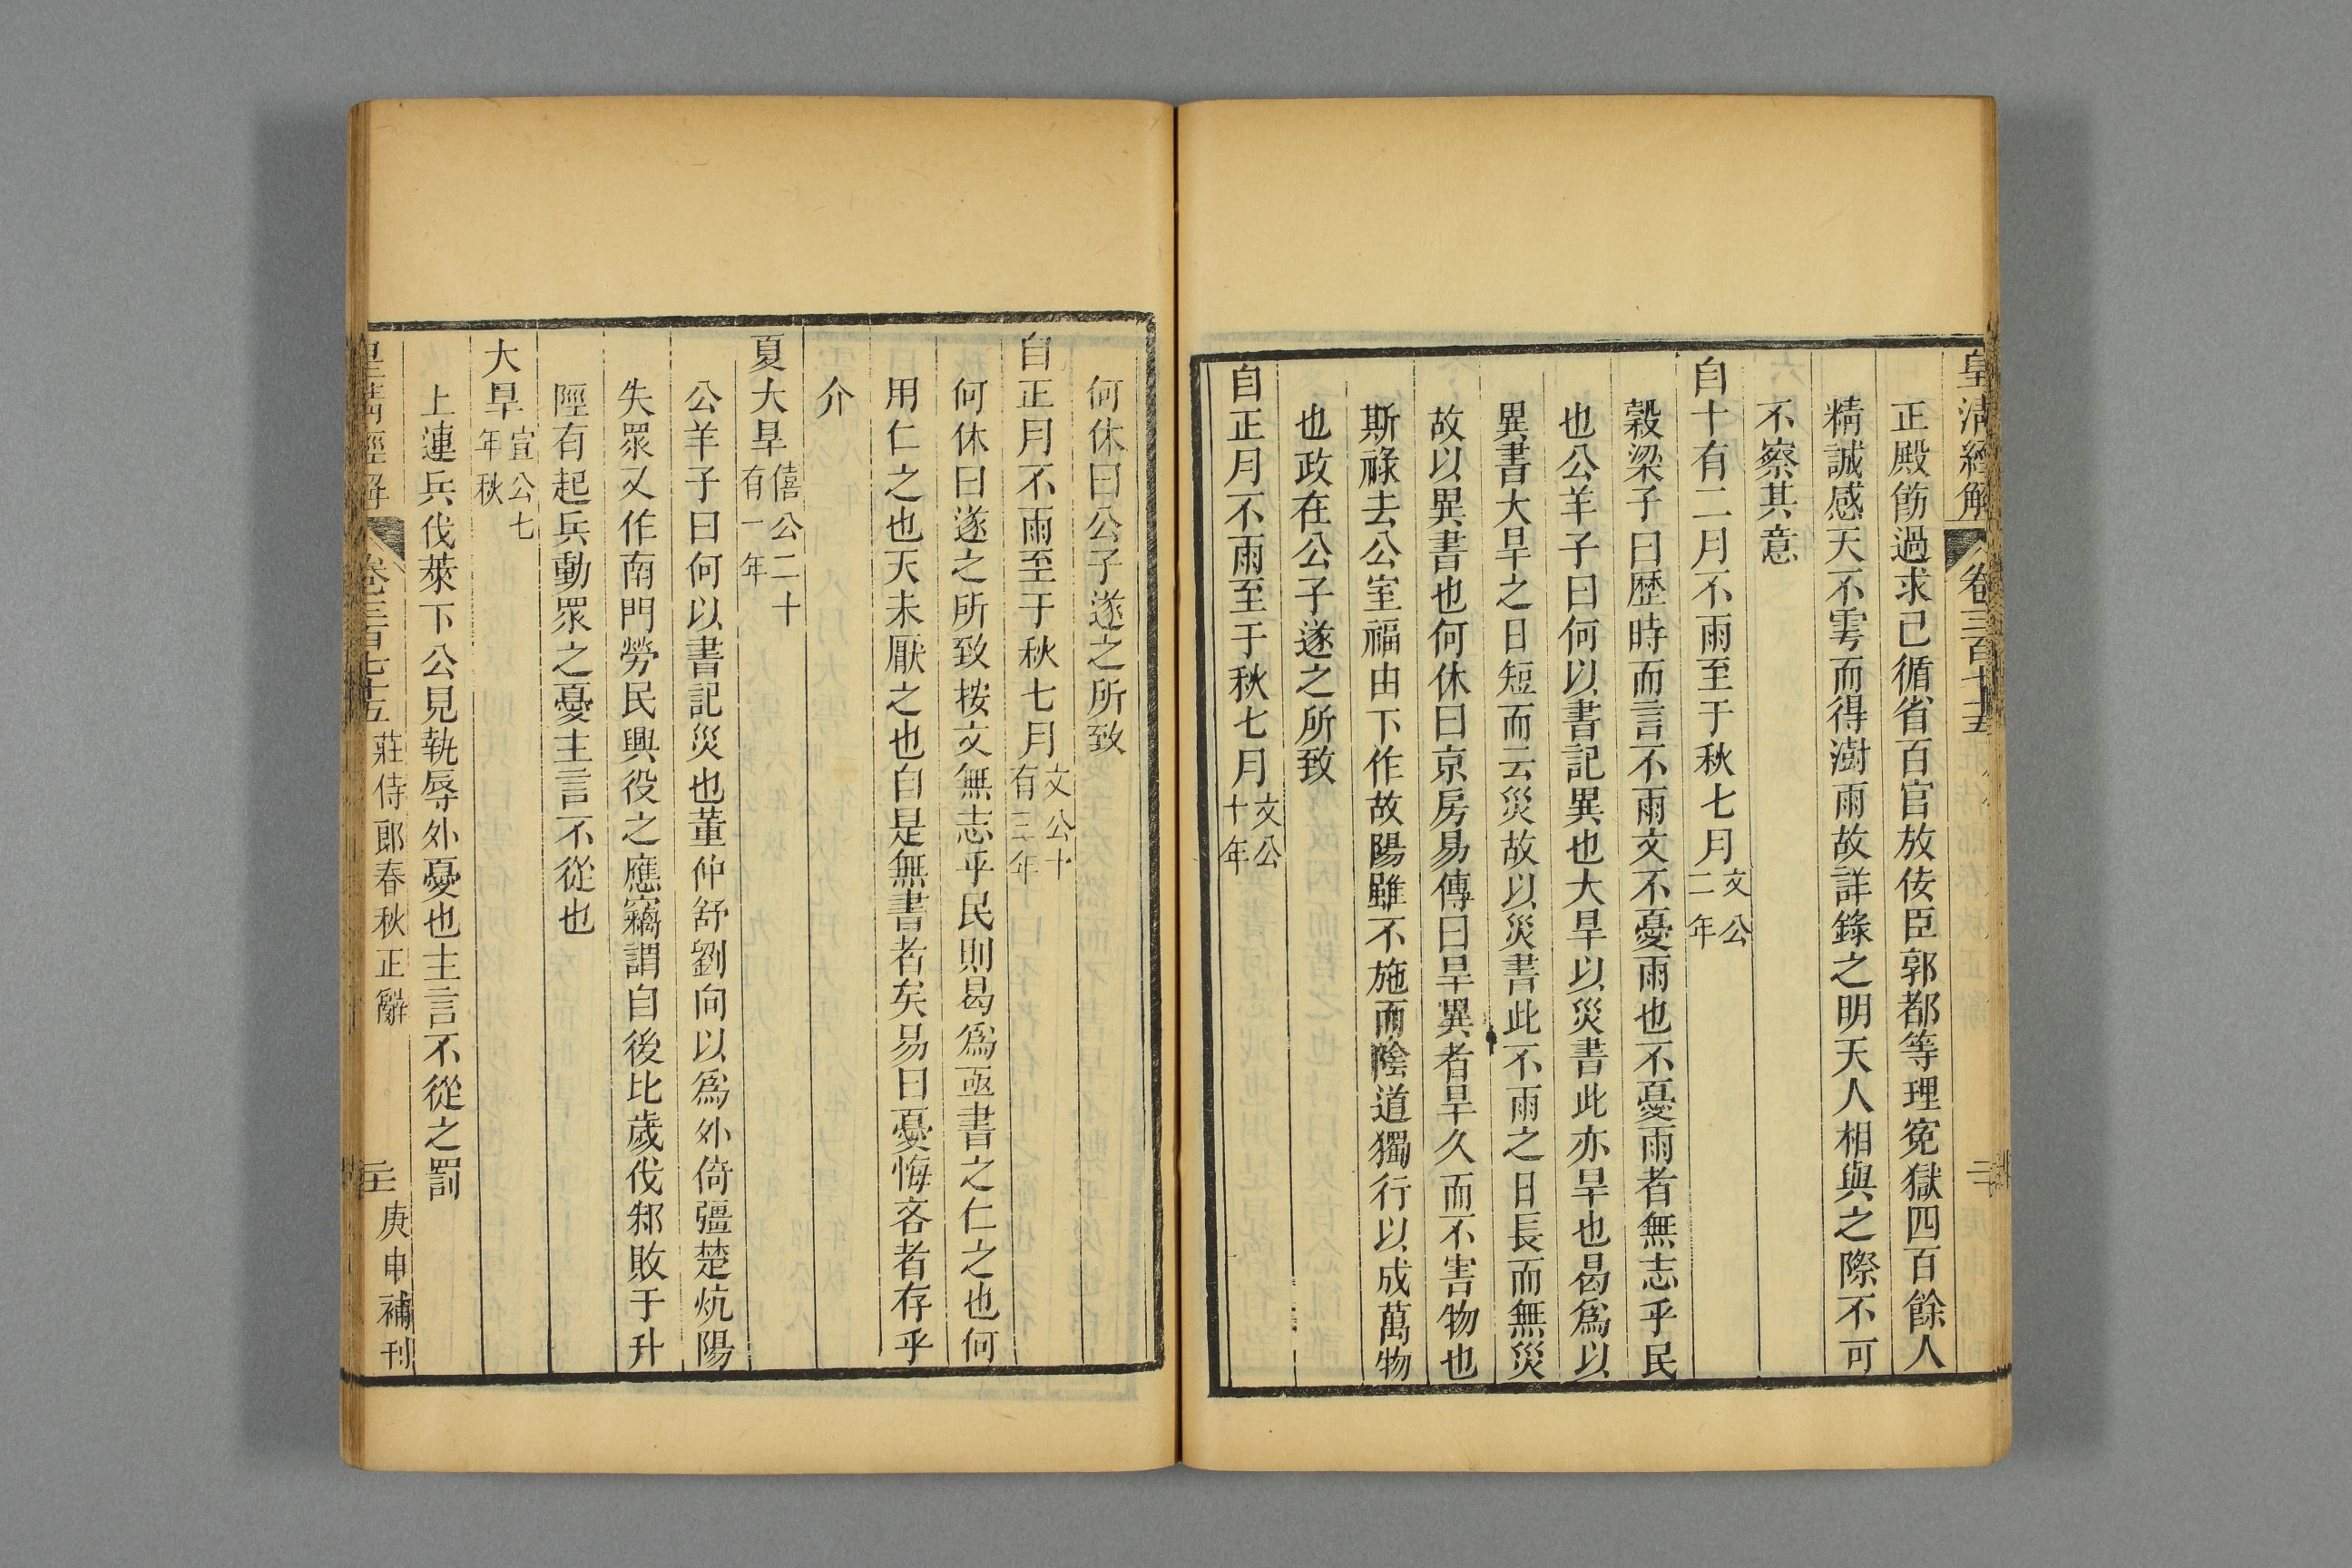 皇清經解 卷三百七十五
正殿飭過求己循省百官放佞臣郭都等理寃獄四百餘人
精誠感天不雩而得澍雨故詳錄之明天人相與之際不可
不察其意
自十有二月不雨至于秋七月文公二年
穀梁子曰歷時而言不雨文不憂雨也不憂雨者無志乎民
也公羊子曰何以書記異也大旱以災書此亦旱也曷爲以
異書大旱之日短而云災故以災書此不雨之日長而無災
故以異書也何休曰京房易傳曰旱異者旱久而不害物也
斯祿去公室福由下作故陽雖不施而陰道獨行以成萬物
也政在公子遂之所致
自正月不雨至于秋七月文公十年
何休曰公子遂之所致
自正月不雨至于秋七月文公十有三年
何休曰遂之所致按文無志乎民則曷爲亟書之仁之也何
用仁之也天未厭之也自是無書者矣易曰憂悔吝者存乎
介
夏大旱僖公二十有一年
公羊子曰何以書記災也董仲舒劉向以爲外倚彊楚炕陽
失眾又作南門勞民興役之應竊謂自後比歲伐邾敗于升
陘有起兵動眾之憂主言不從也
大旱宣公七年秋
上連兵伐萊下公見執辱外憂也主言不從之罰
皇清經解 卷三百七十五 莊侍郎春秋正辭 庚申補刊